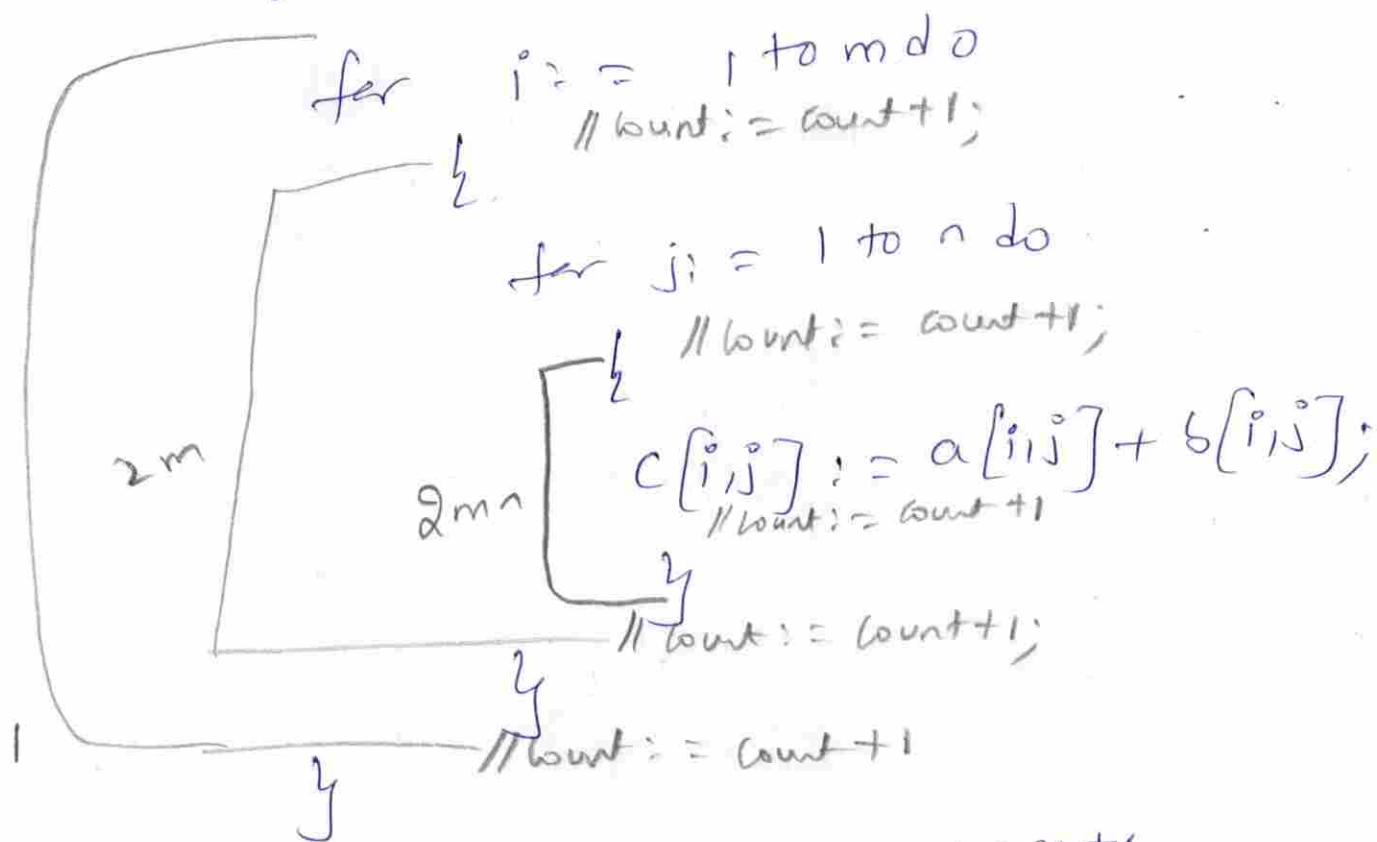 for i: = 1 to m do
// count: = count + 1;
{
for j: = 1 to n do
// count: = count + 1;
{
2m
2mn
C[i,j] : = a[i,j] + b[i,j];
// count: = count + 1
}
// count: = count + 1;
}
1
// count: = count + 1
}